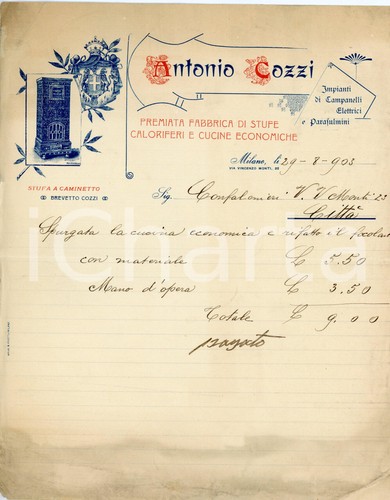 Antonio Cozzi
PREMIATA FABBRICA DI STUFE
CALORIFERI E CUCINE ECONOMICHE
Impianti
di Campanelli
Elettrici
e Parafulmini
STUFA A CAMINETTO
BREVETTO COZZI
Milano, li 29-8-903
VIA VINCENZO MONTI, 33
Sig. Confalonieri V. V Monti 23
Città
Spurgata la cucina economica e rifatto il focolare
con materiale £ 5.50
Mano d'opera £ 3.50
Totale £ 9.00
pagato
iCharta